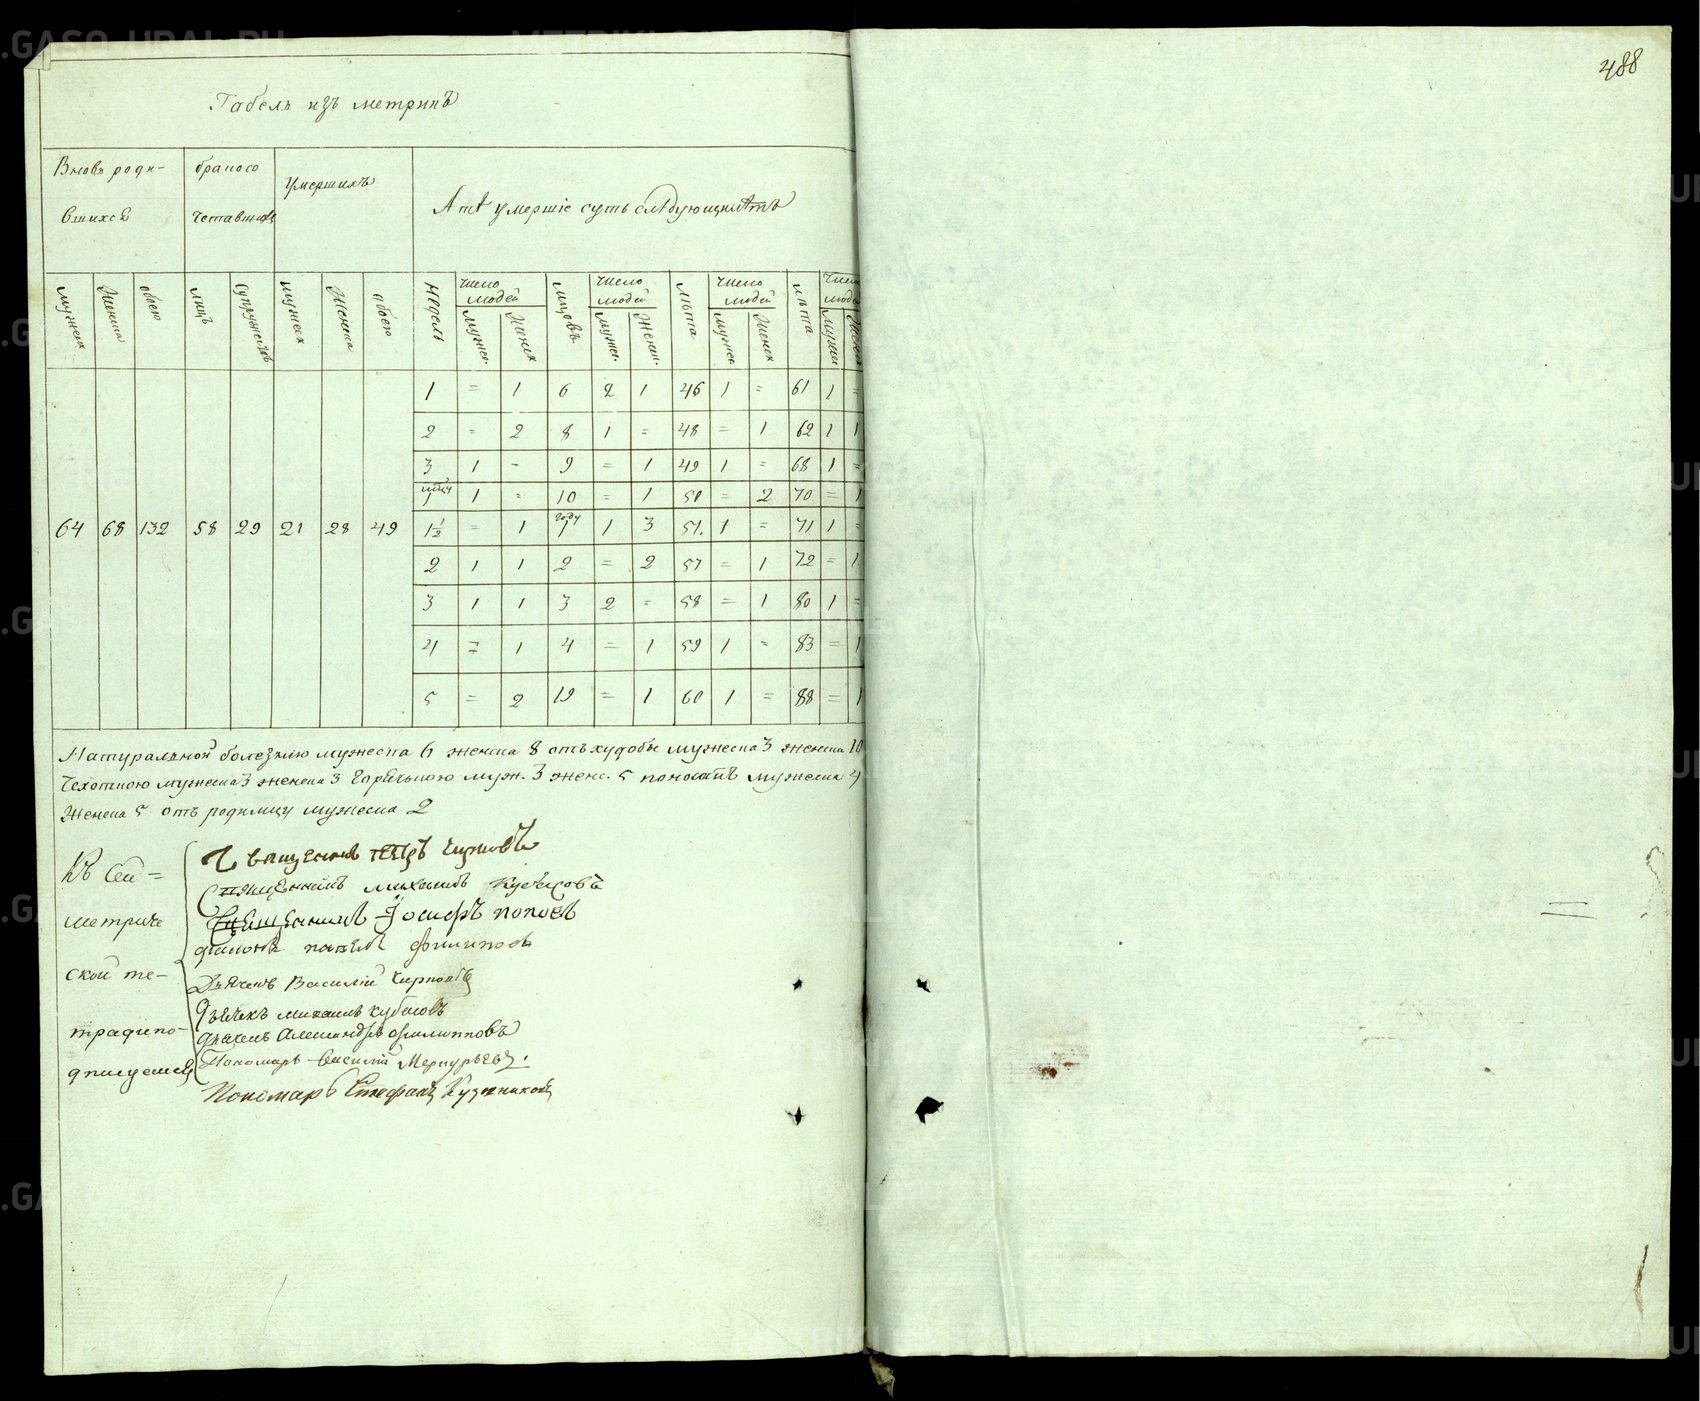 488
Табель изъ метрикъ
Вновь роди-
вшихсѧ
бракосо
четавших
умершихъ
А тѣ умершіе суть слѣдующихъ лѣтъ
мужеск женска обоего лицъ супружествъ мужеск женска обоего
недель число людей мужес. женск мцовъ число людей мужес. женск. лѣта число людей мужес женск лѣта число людей мужес женск
1 = 1 6 2 1 46 1 = 61 1 =
2 = 2 8 1 = 48 = 1 62 1 1
3 1 - 9 = 1 49 1 = 68 1 =
мцу 1 1 = 10 = 1 50 = 2 70 = 1
64 68 132 58 29 21 28 49 1½ = 1 году 1 1 3 51. 1 = 71 1 =
2 1 1 2 = 2 57 = 1 72 = 1
3 1 1 3 2 = 58 = 1 80 1 =
4 = 1 4 = 1 59 1 = 83 = 1
5 = 2 19 = 1 60 1 = 88 = 1
Натуральной болезнію мужеска 6 женска 8 отъ худобы мужеска 3 женска 10
Чехоткою мужеска 3 женска 3 Горѣчькою муж. 3 женс. 5 поносомъ мужеска 4
Женска 5 отъ родимцу мужеска 2
Къ сей =
метриче
ской те-
тради по-
дписуемсѧ
Священникъ Петръ
Священникъ Михаилъ
Священникъ Іосифъ Поповъ
Филиповъ
Дьячекъ Василій
Дьячекъ Михаилъ Кубасовъ
Дьячекъ Александръ Филипповъ
Пономарь Василій Меркурьевъ.
Пономарь Стефанъ